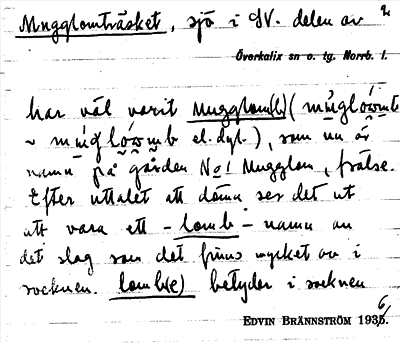 Mugglomträsket, sjö i SV. delen av 2
Överkalix sn o. tg. Norrb. l.
har väl varit Mugglom(b) (múgló́mb
~ mụ́glọ́mb el. dyl.), som nu är
namn på gården No 1 Mugglom, frälse.
Efter uttalet att döma ser det ut
att vara ett -lomb- namn av
det slag som det finns mycket av i
socknen. lomb(e) betyder i socknen
EDVIN BRÄNNSTRÖM 1936.